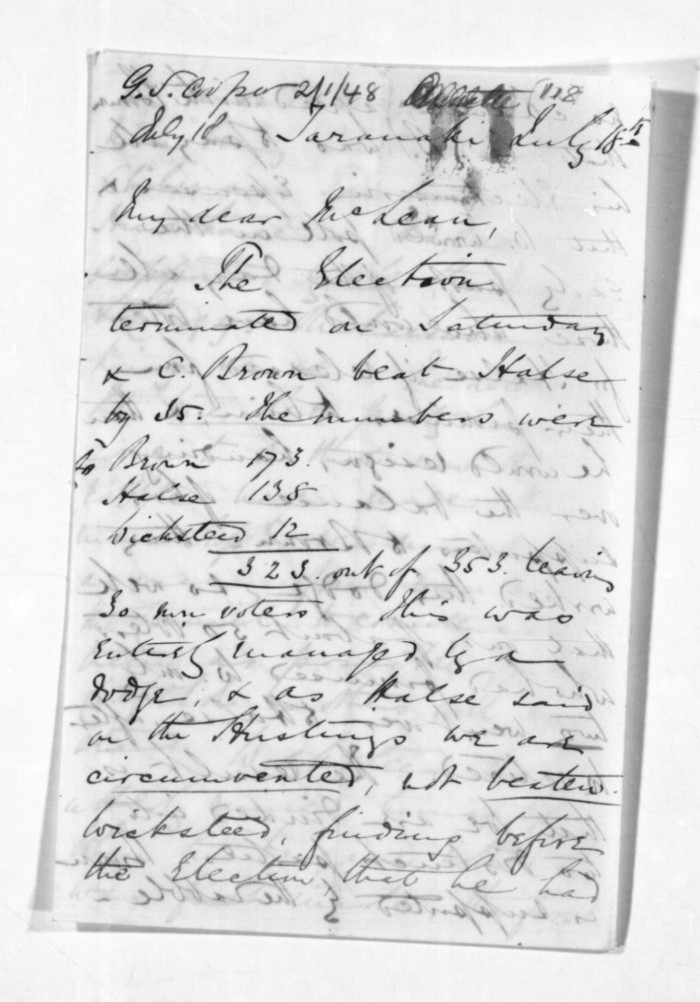 G.S. Cooper 2/1/48
July 18 Taranaki July 18th
My dear McLean,
The Election
terminated on Saturday
& C. Brown beat Halse
by 35. The numbers were
Brown 173.
Halse 138
Wicksteed 12
323. out of 353. leaving
30 non voters. This was
entirely managed by a
dodge, & as Halse said
on the Hustings we are
circumvented, not beaten.
Wicksteed, finding before
the Election that he had